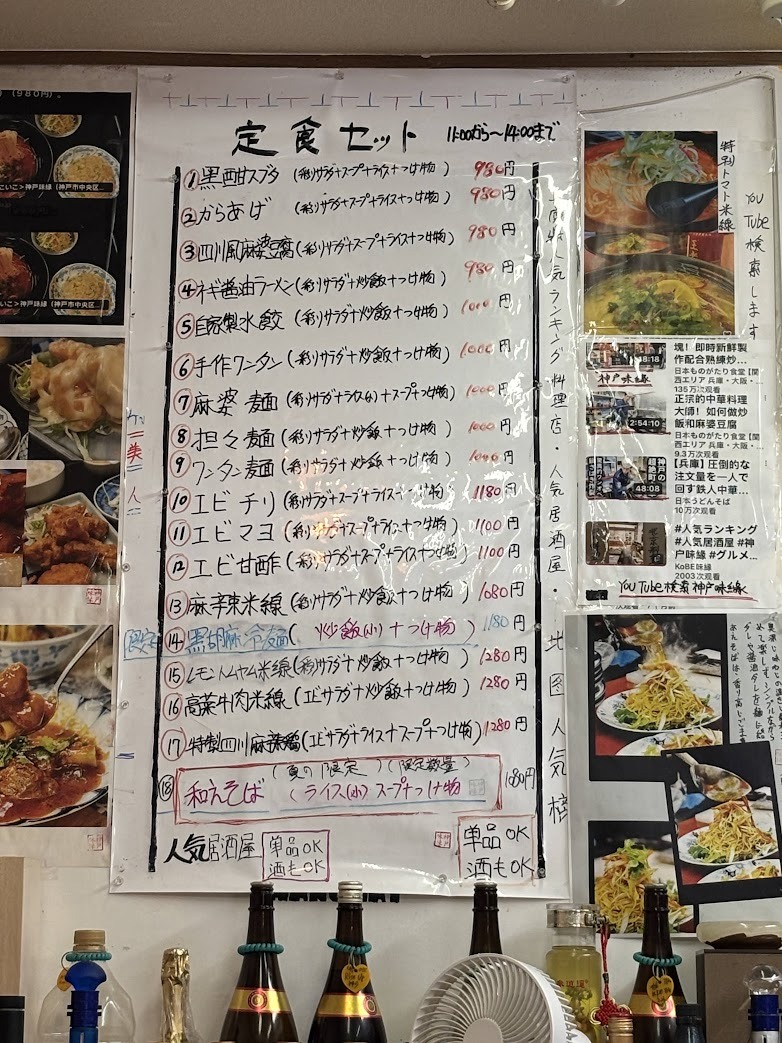 定食セット 11:00から〜14:00まで
① 黒酢スブタ (彩りサラダ+スープ+ライス+つけ物) 980円
② からあげ (彩りサラダ+スープ+ライス+つけ物) 980円
③ 四川風麻婆豆腐 (彩りサラダ+スープ+ライス+つけ物) 980円
④ ネギ醤油ラーメン (彩りサラダ+炒飯+つけ物) 980円
⑤ 自家製水餃 (彩りサラダ+炒飯+つけ物) 1000円
⑥ 手作ワンタン (彩りサラダ+炒飯+つけ物) 1000円
⑦ 麻婆麺 (彩りサラダ+ライス(小)+スープ+つけ物) 1000円
⑧ 担々麺 (彩りサラダ+炒飯+つけ物) 1000円
⑨ ワンタン麺 (彩りサラダ+炒飯+つけ物) 1000円
⑩ エビチリ (彩りサラダ+スープ+ライス+つけ物) 1180円
⑪ エビマヨ (彩りサラダ+スープ+ライス+つけ物) 1100円
⑫ エビ甘酢 (彩りサラダ+スープ+ライス+つけ物) 1100円
⑬ 麻辛束米線 (彩りサラダ+炒飯+つけ物) 1080円
⑭ 黒胡麻冷麺 ( 炒飯(小)+つけ物) 1180円
⑮ レモントムヤム米線 (彩りサラダ+炒飯+つけ物) 1280円
⑯ 高菜牛肉米線 (エビサラダ+炒飯+つけ物) 1280円
⑰ 特製四川麻辣鶏 (エビサラダ+ライス+スープ+つけ物) 1280円
⑱ (夏の限定) (限定数量)
和えそば (ライス(小)スープ+つけ物 1080円
人気居酒屋 単品OK
酒もOK
単品OK
酒もOK
人気ランキング 料理店・人気居酒屋・
(980円)。
特製トマト米線
YouTube検索します
48:18
塊！即時新鮮製
作配合熟練炒...
日本ものがたり食堂【関
西エリア 兵庫・大阪・...
135万次观看
神戸味縁
2:54:10
正宗的中華料理
大師！如何做炒
飯和麻婆豆腐
日本ものがたり食堂【関
西エリア 兵庫・大阪・...
9.3万次观看
48:08
【兵庫】圧倒的な
注文量を一人で
回す鉄人中華...
日本うどんそば
10万次观看
#人気ランキング
#人気居酒屋 #神
戸味縁 #グルメ...
KoBE味縁
2003次观看
YouTube検索 神戸味縁